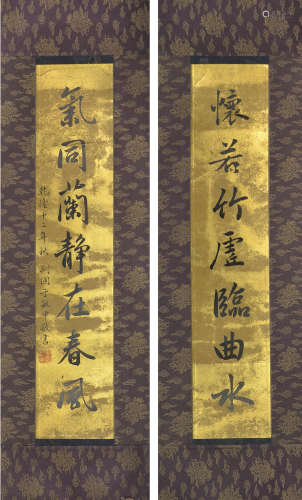 懷若竹虛臨曲水
氣同蘭靜在春風
乾隆十二年秋